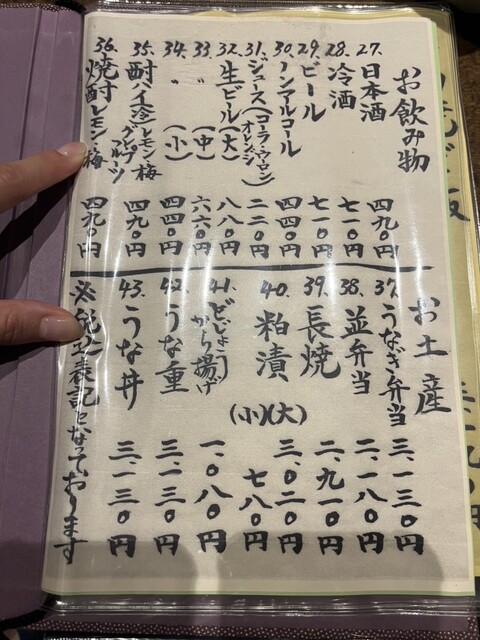 お飲み物
27. 日本酒 四九〇円
28. 冷酒 七一〇円
29. ビール 七一〇円
30. ノンアルコール 四四〇円
31. ジュース(コーラ・ウーロン オレンジ) 二二〇円
32. 生ビール(大) 八八〇円
33. 〃 (中) 六六〇円
34. 〃 (小) 四四〇円
35. 酎ハイ(冷)レモン 梅 グレープフルーツ 四九〇円
36. 焼酎 レモン 梅 四九〇円
お土産
37. うなぎ弁当 三、一三〇円
38. 並弁当 二、一八〇円
39. 長焼 二、九一〇円
40. 粕漬 (大) 三、〇二〇円
(小) 七八〇円
41. どじょうから揚げ 一、〇八〇円
42. うな重 三、一三〇円
43. うな丼 三、一三〇円
※税込表記となっております